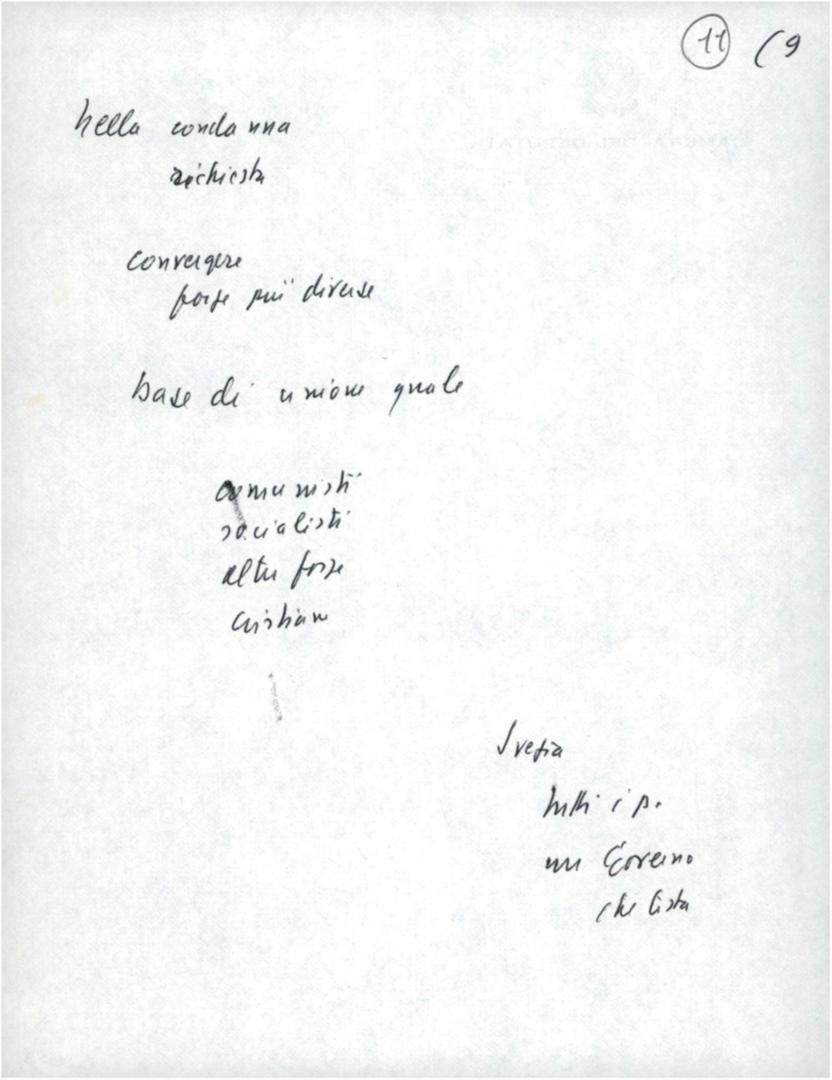 11 (9
nella condanna
richiesta
convergere
forze più diverse
base di unione quale
comunisti
socialisti
altre forze
cristiane
Svezia
tutti i p.
un Governo
che lista